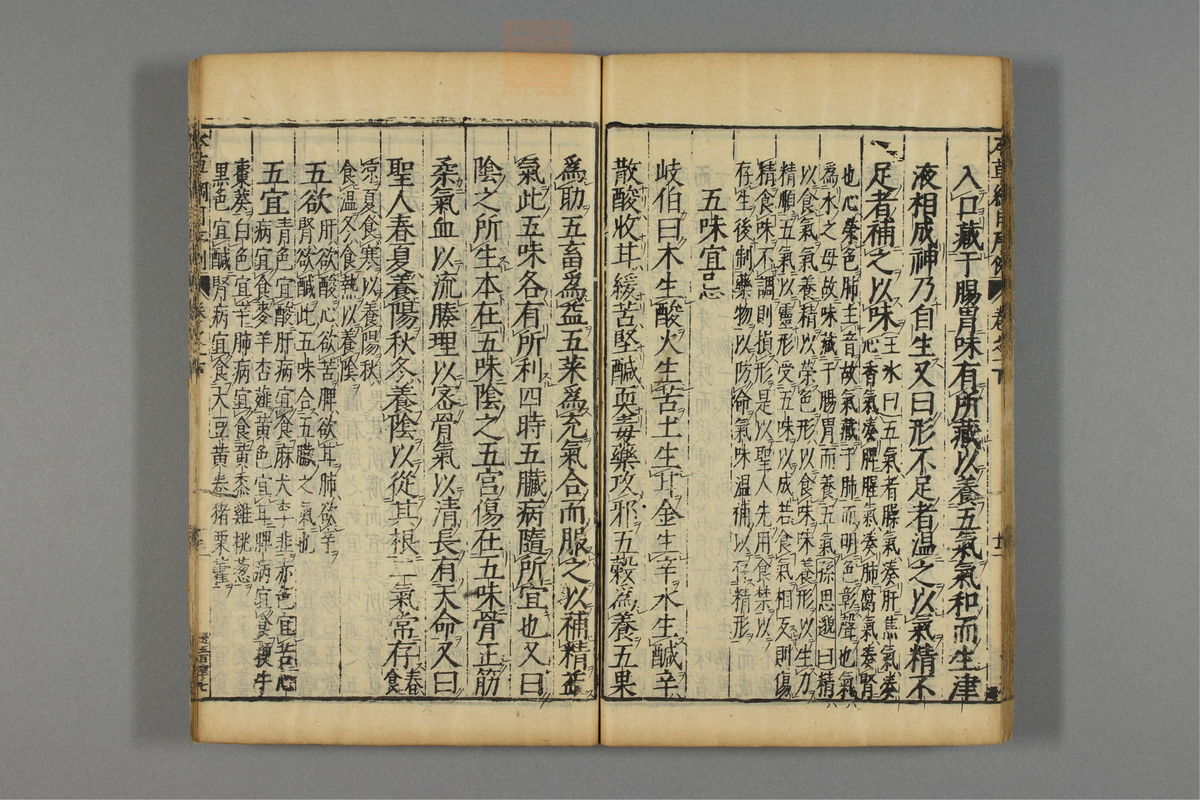 入口藏于腸胃味有所藏以養五氣氣和而生津
液相成神乃自生又曰形不足者温之以氣精不
足者補之以味王氷曰五氣者臊氣凑肝焦氣凑
心香氣凑脾腥氣凑肺腐氣凑腎
也心榮色肺主音故氣藏于肺而明色彰聲也氣
為水之母故味藏于腸胃而養五氣孫思邈曰精
以食氣氣養精以榮色形以食味味養形以生力
精順五氣以靈形受五味以成若食氣相反則傷
精食味不調則損形是以聖人先用食禁以
存生後制藥物以防命氣味温補以存精形
五味宜忌
岐伯曰木生酸火生苦土生甘金生辛水生鹹辛
散酸收甘緩苦堅鹹耎毒藥攻邪五穀為養五果
為助五畜為益五菜為充氣合而服之以補精益
氣此五味各有所利四時五臟病隨所宜也又曰
陰之所生本在五味陰之五宫傷在五味骨正筋
柔氣血以流腠理以密骨氣以清長有天命又曰
聖人春夏養陽秋冬養陰以從其根二氣常存春食
凉夏食寒以養陽秋
食温冬食熱以養陰
五欲肝欲酸心欲苦脾欲甘肺欲辛
腎欲鹹此五味合五臟之氣也
五宜青色宜酸肝病宜食麻犬李韭赤色宜苦心
病宜食麥羊杏薤黄色宜甘脾病宜食粳牛
棗葵白色宜辛肺病宜食黄黍雞桃葱
黒色宜鹹腎病宜食大豆黄卷猪栗藿